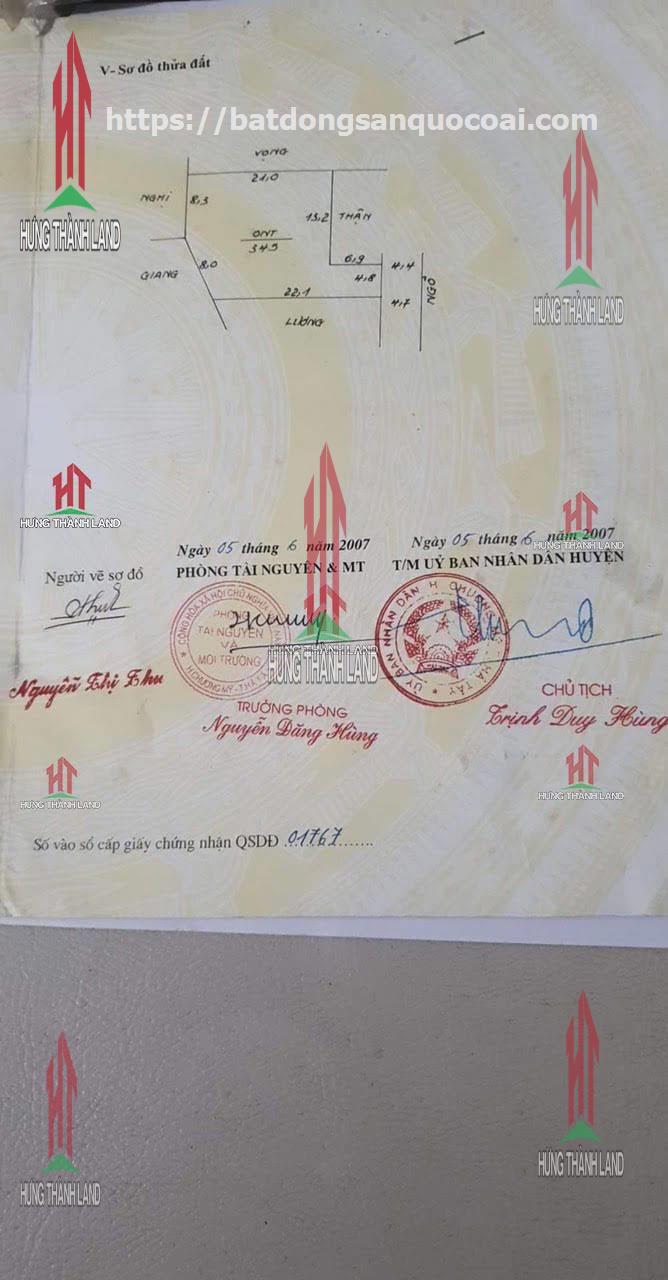 V- Sơ đồ thửa đất
https://batdongsanquocoai.com
HƯNG THÀNH LAND
VỌNG
21,0
NGHỊ
8,3
13,2
THẬN
ONT
345
8,0
GIANG
6,9
4,8
4,4
NGÕ
22,1
4,7
LƯƠNG
HƯNG THÀNH LAND
HƯNG THÀNH LAND
HƯNG THÀNH LAND
Ngày 05 tháng 6 năm 2007
Ngày 05 tháng 6 năm 2007
Người vẽ sơ đồ
PHÒNG TÀI NGUYÊN & MT
T/M UỶ BAN NHÂN DÂN HUYỆN
PHÒNG
TÀI NGUYÊN
VÀ
MÔI TRƯỜNG
HƯNG THÀNH LAND
Nguyễn Thị Thu
TRƯỞNG PHÒNG
Nguyễn Đăng Hùng
CHỦ TỊCH
Trịnh Duy Hùng
HƯNG THÀNH LAND
HƯNG THÀNH LAND
Số vào sổ cấp giấy chứng nhận QSDĐ .01767.......
HƯNG THÀNH LAND
HƯNG THÀNH LAND